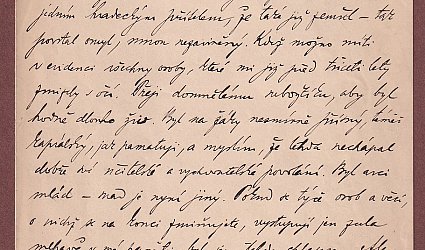 jedním hradeckým přítelem, že také již zemřel – tak
povstal omyl, mnou nezaviněný. Když možno míti
v evidenci všechny osoby, které mi již před třiceti lety
zmizely s očí. Přeji domnělému nebožtíku, aby byl
hodně dlouho živ. Byl na žáky nesmírně přísný, téměř
kaprálský, jak pamatuji, a myslím, že tehda nechápal
dobře své učitelské a vychovatelské povolání. Byl arci
mlád – snad je nyní jiný. Pokud se týče osob a věcí,
o nichž se na konci zmiňujete, vystupují jen zcela
mlhavě v mé